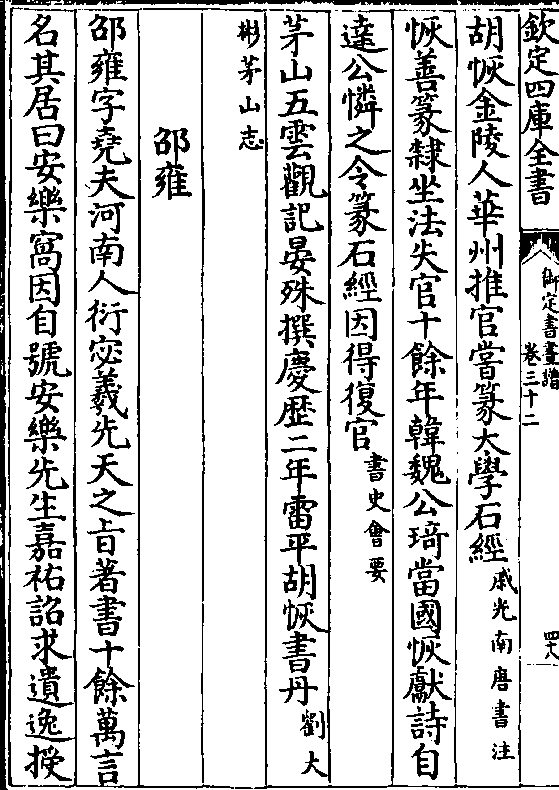 欽定四庫全書
御定書畫譜
卷三十二
四八
胡恢金陵人華州推官嘗篆太學石經戚光南唐書注
恢善篆隸坐法失官十餘年韓魏公琦當國恢獻詩自
達公憐之令篆石經因得復官書史會要
茅山五雲觀記晏殊撰慶歴二年雷平胡恢書丹劉大
彬茅山志
邵雍
邵雍字堯夫河南人衍宓羲先天之旨著書十餘萬言
名其居曰安樂窩因自號安樂先生嘉祐詔求遺逸授